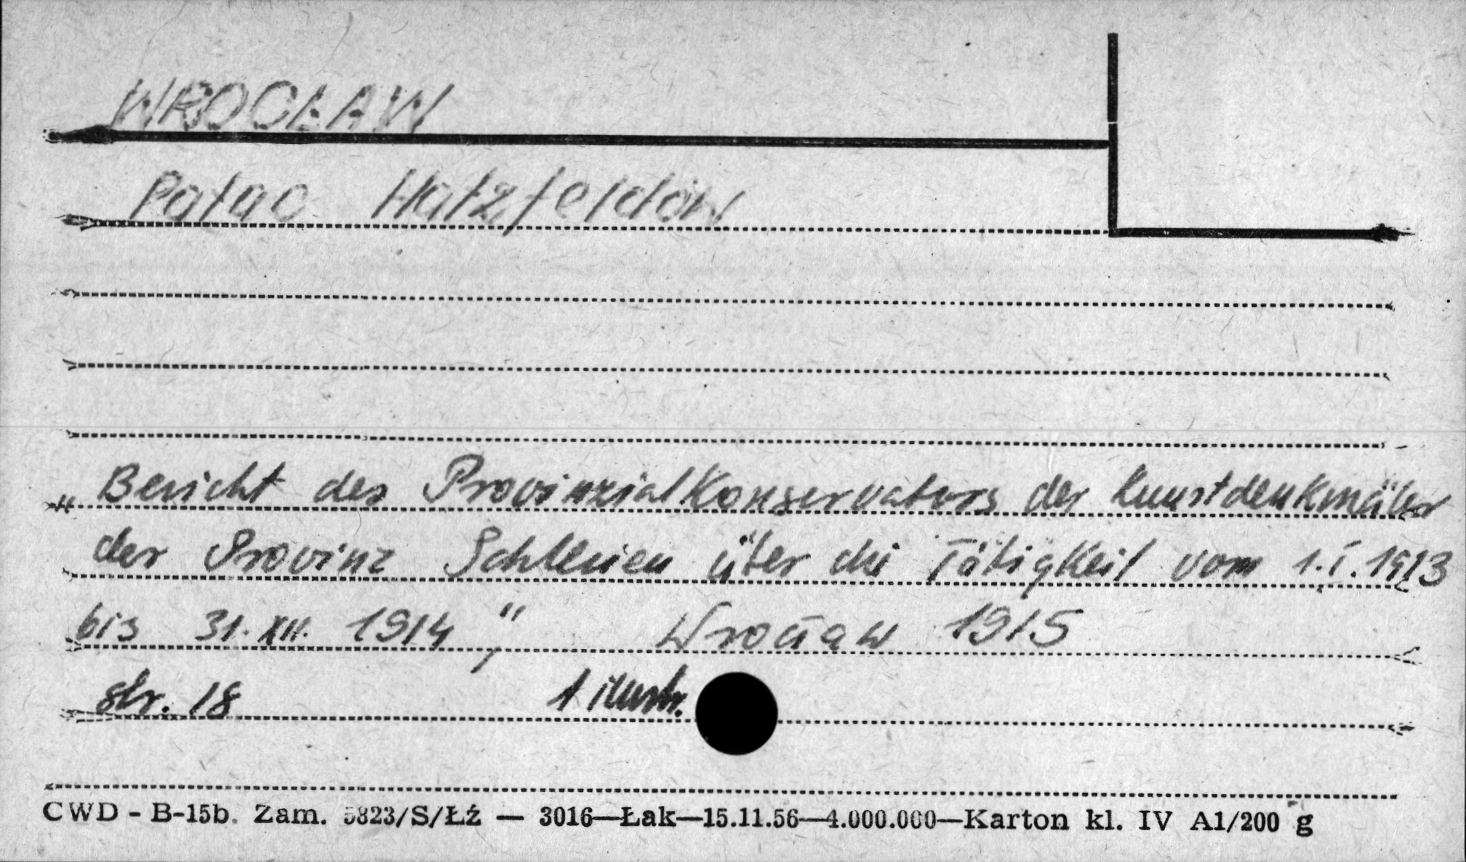 WROCŁAW
Pałac Hatzfeldów
„Bericht des Provinzial Konservators der Kunstdenkmäler
der Provinz Schlesien über die Tätigkeit vom 1.I.1913
bis 31.XII.1914", Wrocław 1915
str. 18 1 ilustr.
CWD - B-15b. Zam. 5823/S/ŁŹ — 3016—Łak—15.11.56—4.000.000—Karton kl. IV A1/200 g